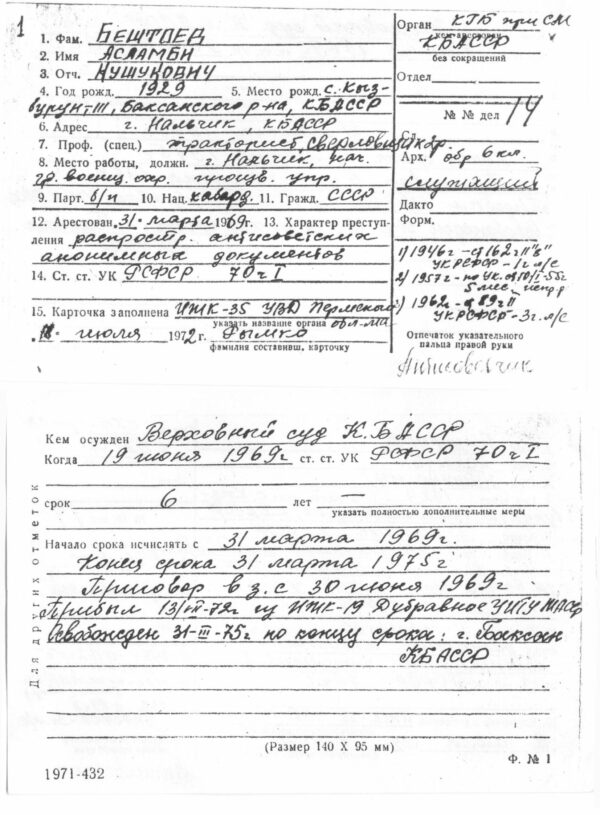 1
1. Фам. БЕШТОЕВ
2. Имя АСЛАМБИ
3. Отч. НУШУКОВИЧ
4. Год рожд. 1929 5. Место рожд. с. Кыз-
бурунт III, Баксанского р-на, КБАССР
6. Адрес г. Нальчик, КБАССР
7. Проф. (спец.) тракторист, сверловщик 2р.
8. Место работы, должн. г. Нальчик, нач.
гр. воениз. охр. произв. упр.
9. Парт. б/п 10. Нац. кабард. 11. Гражд. СССР
12. Арестован 31 марта 1969г. 13. Характер преступ-
ления распростр. антисоветских
анонимных документов
14. Ст. ст. УК РСФСР 70 ч I
15. Карточка заполнена ИТК-35 УВД Пермской
указать название органа обл-ма
18 июля 1972 г. Рымко
фамилия составивш. карточку
Орган КГБ при СМ
кем арестован
КБАССР
без сокращений
Отдел
№ № дел 14
Арх. обр 6 кл.
служащий
Дакто
Форм.
1) 1946г - ст 162 г "в"
УК РСФСР - 1 г л/с
2) 1957г - по УК. от 10/I-55г
5 мес. испр. р
3) 1962г - ст 89 г II
УК РСФСР - 3 г. л/с
Отпечаток указательного
пальца правой руки
Кем осужден Верховный суд К.БАССР
Когда 19 июня 1969г ст. ст. УК РСФСР 70 ч I
срок 6 лет —
указать полностью дополнительные меры
Начало срока исчислять с 31 марта 1969г.
Конец срока 31 марта 1975г
Приговор в з.с 30 июня 1969г
Прибыл 13/VII-72г из ИТК-19 Дубравное УИТУ МАССР
Освобожден 31-III-75г по концу срока: г. Баксан
КБАССР
Для других отметок
(Размер 140 X 95 мм)
Ф. № 1
1971-432